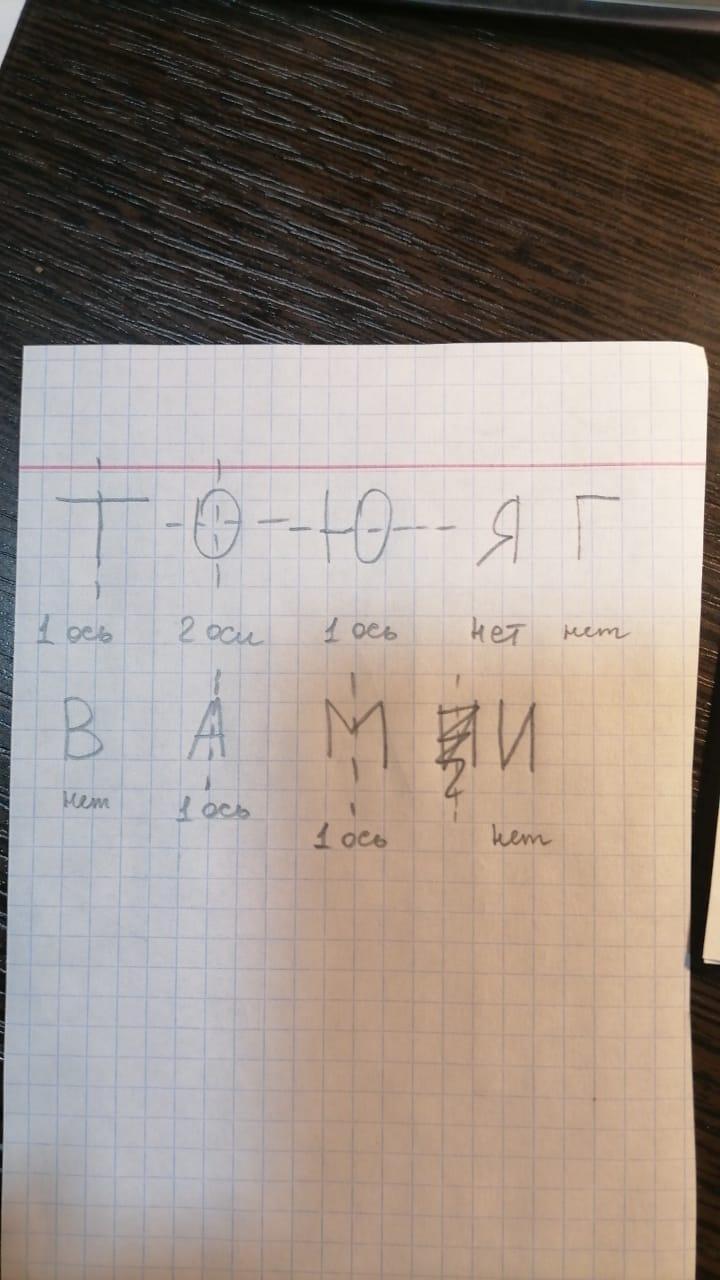 Т О Ю Я Г
1 ось 2 оси 1 ось нет нет
В А М И
нет 1 ось 1 ось нет